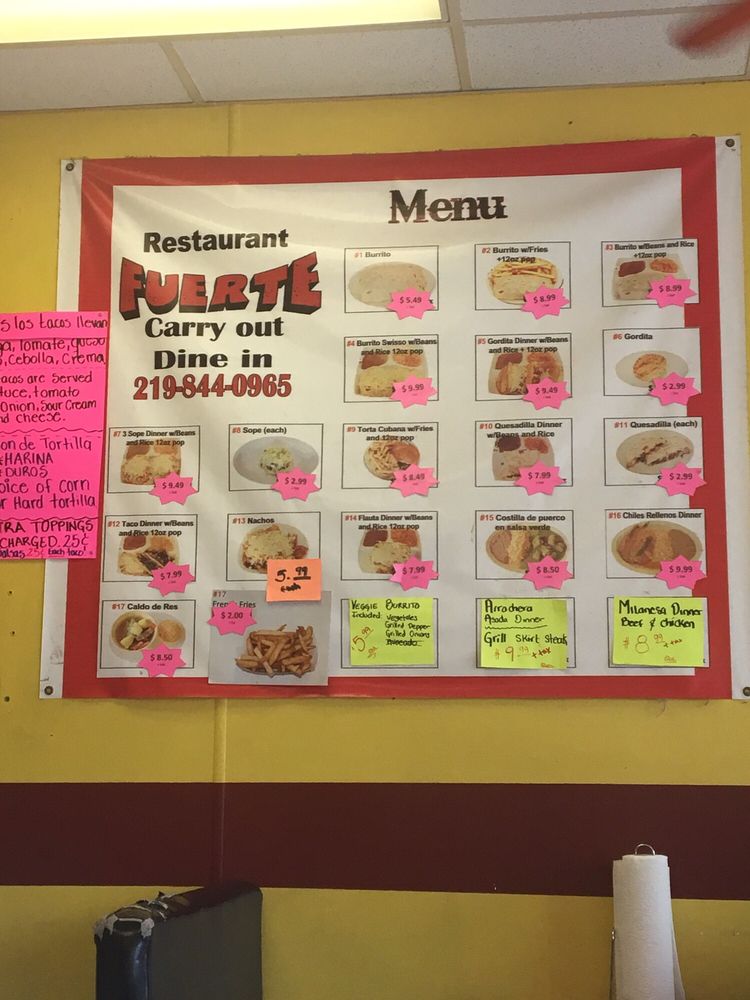 Menu
Restaurant
FUERTE
Carry out
Dine in
219-844-0965
#1 Burrito
$ 5.49
#2 Burrito w/Fries
+12oz pop
$ 8.99
#3 Burrito w/Beans and Rice
+12oz pop
$ 8.99
#4 Burrito Swisso w/Beans
and Rice 12oz pop
$ 9.99
#5 Gordita Dinner w/Beans
and Rice + 12oz pop
$ 9.49
#6 Gordita
$ 2.99
#7 3 Sope Dinner w/Beans
and Rice 12oz pop
$ 9.49
#8 Sope (each)
$ 2.99
#9 Torta Cubana w/Fries
and 12oz pop
$ 8.49
#10 Quesadilla Dinner
w/Beans and Rice
$ 7.99
#11 Quesadilla (each)
$ 2.99
#12 Taco Dinner w/Beans
and Rice 12oz pop
$ 7.99
#13 Nachos
5.99
each
#14 Flauta Dinner w/Beans
and Rice 12oz pop
$ 7.99
#15 Costilla de puerco
en salsa verde
$ 8.50
#16 Chiles Rellenos Dinner
$ 9.99
#17 Caldo de Res
$ 8.50
#17
Fries
$ 2.00
Veggie Burrito
Included Vegetales
Grilled Pepper
Grilled Onions
Avocado
5.99
Arrachera
Asada Dinner
Grill Skirt Steak
$ 9.99 + tax
Milanesa Dinner
Beef & chicken
$ 8.99 + tax
s los tacos llevan
ga, Tomate, queso
, Cebolla, Crema
acos are served
tuce, tomato
Onion, Sour Cream
nd cheese.
on de Tortilla
HARINA
DUROS
oice of corn
r Hard tortilla
TRA TOPPINGS
CHARGED. 25¢
25¢ Each taco